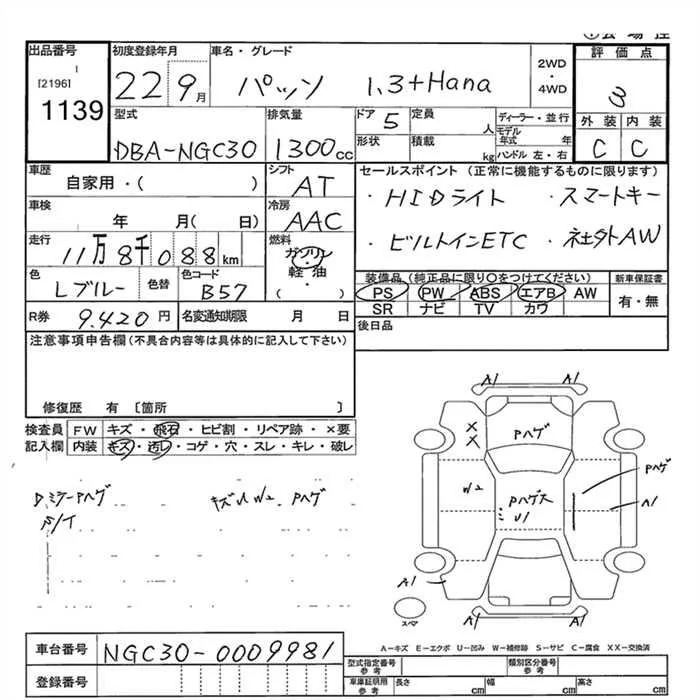 出品番号
[2196]
1139
初度登録年月
22 9月
車名・グレード
パッソ 1.3+Hana
2WD
・
4WD
評価点
3
外装 内装
C C
型式
DBA-NGC30
排気量
1300cc
ドア 5
定員 人
形状
積載 kg
ディーラー・並行
モデル年式 年
ハンドル 左・右
車歴
自家用・( )
シフト
AT
セールスポイント (正常に機能するものに限ります)
・HIDライト ・スマートキー
・ビルトインETC ・社外AW
車検
年 月(日)
冷房
AAC
走行
11万8千088km
燃料
ガソリン
・
軽油
( )
色
Lブルー
色替
色コード
B57
装備品(純正品に限り○をつけてください)
PS PW ABS エアB AW
SR ナビ TV カワ
新車保証書
有・無
R券 9.420円
名変通知期限 月 日
後日品
注意事項申告欄(不具合内容等は具体的に記入して下さい)
修復歴 有 〔箇所 〕
検査員記入欄
FW キズ・飛石・ヒビ割・リペア跡・×要
内装 キズ・汚レ・コゲ・穴・スレ・キレ・破レ
DミラーPハゲ
キズU W2. Pハゲ
A1 A1
X
X
Pハゲ
W2
Pハゲ大
U1
Pハゲ
A1
A1
A1 A1
スペア
A-キズ E-エクボ U-凹み W-補修跡 S-サビ C-腐食 XX-交換済
車台番号
NGC30-0009981
登録番号
型式指定番号
参考
類別区分番号
参考
車庫証明用
参考
長さ cm
幅 cm
高さ cm